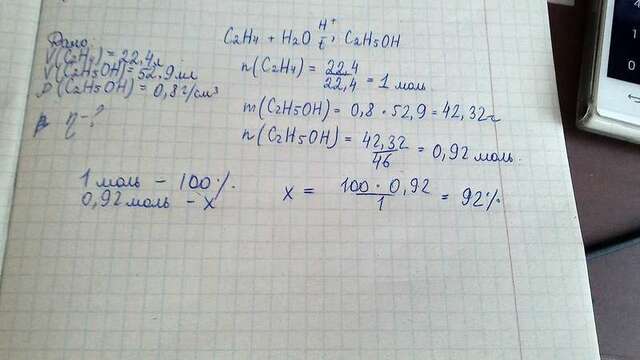 Дано:
V(C2H4) = 22,4л
V(C2H5OH) = 52,9 мл
ρ(C2H5OH) = 0,8 г/см³
η - ?
C2H4 + H2O H⁺, t → C2H5OH
n(C2H4) = 22,4 / 22,4 = 1 моль
m(C2H5OH) = 0,8 · 52,9 = 42,32г
n(C2H5OH) = 42,32 / 46 = 0,92 моль.
1 моль – 100%.
0,92 моль – x
x = 100 · 0,92 / 1 = 92%